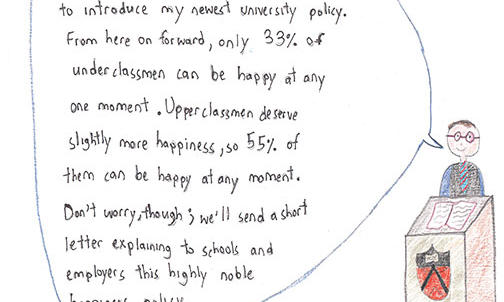 to introduce my newest university policy.
From here on forward, only 33% of
underclassmen can be happy at any
one moment. Upperclassmen deserve
slightly more happiness, so 55% of
them can be happy at any moment.
Don't worry, though; we'll send a short
letter explaining to schools and
employers this highly noble
happiness policy